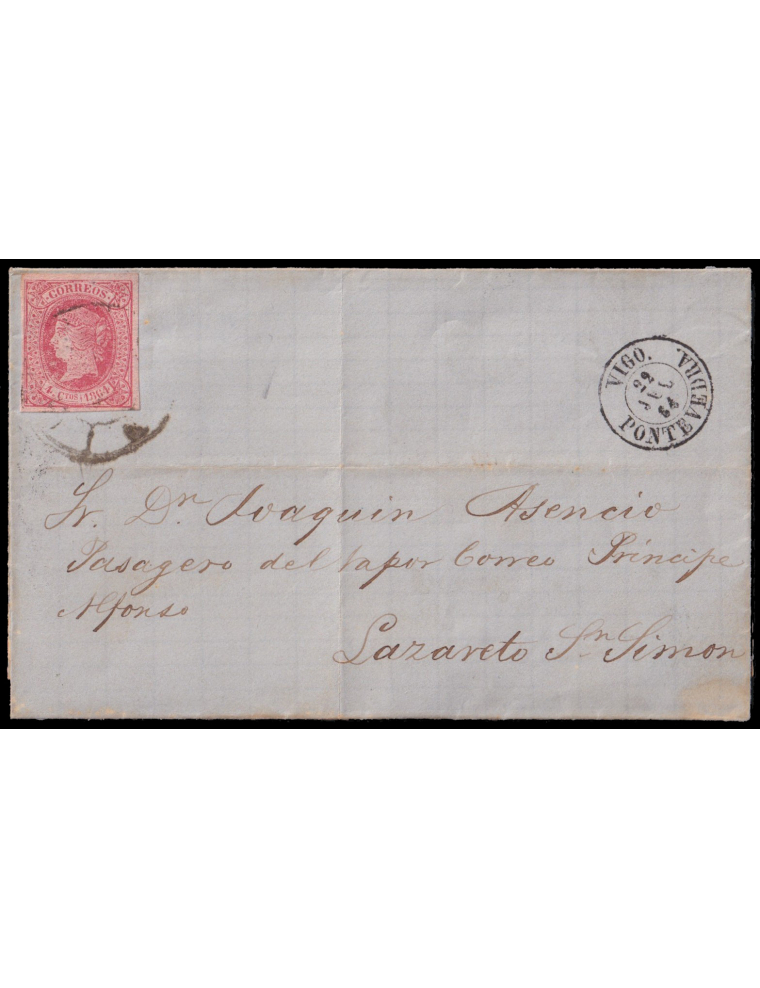 CORREOS
4 CTOS 1864
VIGO.
22
JUL
64
PONTEVEDRA.
Sr. Dn. Joaquin Asencio
Pasagero del vapor Correo Principe
Alfonso
Lazareto Sn. Simon